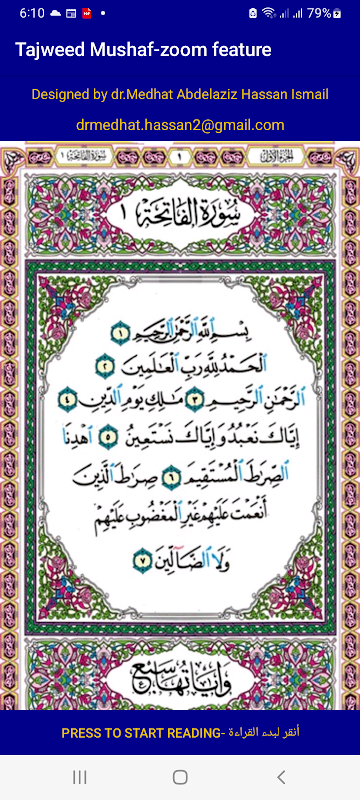 6:10
79%
Tajweed Mushaf-zoom feature
Designed by dr.Medhat Abdelaziz Hassan Ismail
drmedhat.hassan2@gmail.com
سورة الفاتحة ١
١
الجزء الأول
سُورَةُ الفَاتِحَةِ ١
بِسْمِ اللَّهِ الرَّحْمَٰنِ الرَّحِيمِ ١
الْحَمْدُ لِلَّهِ رَبِّ الْعَالَمِينَ ٢
الرَّحْمَٰنِ الرَّحِيمِ ٣ مَالِكِ يَوْمِ الدِّينِ ٤
إِيَّاكَ نَعْبُدُ وَإِيَّاكَ نَسْتَعِينُ ٥ اهْدِنَا
الصِّرَاطَ الْمُسْتَقِيمَ ٦ صِرَاطَ الَّذِينَ
أَنْعَمْتَ عَلَيْهِمْ غَيْرِ الْمَغْضُوبِ عَلَيْهِمْ
وَلَا الضَّآلِّينَ ٧
وَآيَاتُهَا سَبْعٌ
PRESS TO START READING- أنقر لبدء القراءة